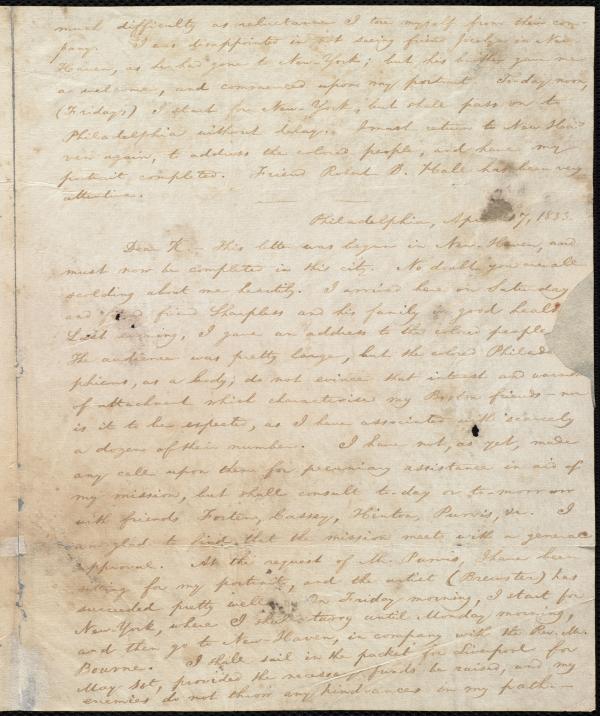 much difficulty as reluctance I tore myself from their com-
pany. I was disappointed in not seeing friend Jocelyn in New
Haven, as he had gone to New-York; but his brother gave me
a welcome, and commenced upon my portrait. To-day noon,
(Friday,) I start for New-York, but shall pass on to
Philadelphia without delay. I must return to New Ha-
ven again, to address the colored people, and have my
portrait completed. Friend Robert B. Hall has been very
attentive.
Philadelphia, April 17, 1833.
Dear K— This letter was begun in New-Haven, and
must now be completed in this city. No doubt you are all
scolding about me heartily. I arrived here on Saturday
and found friend Sharpless and his family in good health
Last evening, I gave an address to the colored people.
The audience was pretty large, but the colored Philadel
phians, as a body, do not evince that interest and warmth
of attachment which characterise my Boston friends—nor
is it to be expected, as I have associated with scarcely
a dozen of their number. I have not, as yet, made
any call upon them for pecuniary assistance in aid of
my mission, but shall consult to-day or to-morrow
with friends Forten, Cassey, Hinton, Purvis, &c. I
am glad to find that the mission meets with a general
approval. At the request of Mr. Purvis, I have been
sitting for my portrait, and the artist (Brewster) has
succeeded pretty well. On Friday morning, I start for
New-York, where I shall tarry until Monday morning,
and then go to New-Haven, in company with the Rev. Mr.
Bourne. I shall sail in the packet for Liverpool for
May 1st, provided the necessary funds be raised, and my
enemies do not throw any hindrances in my path.—